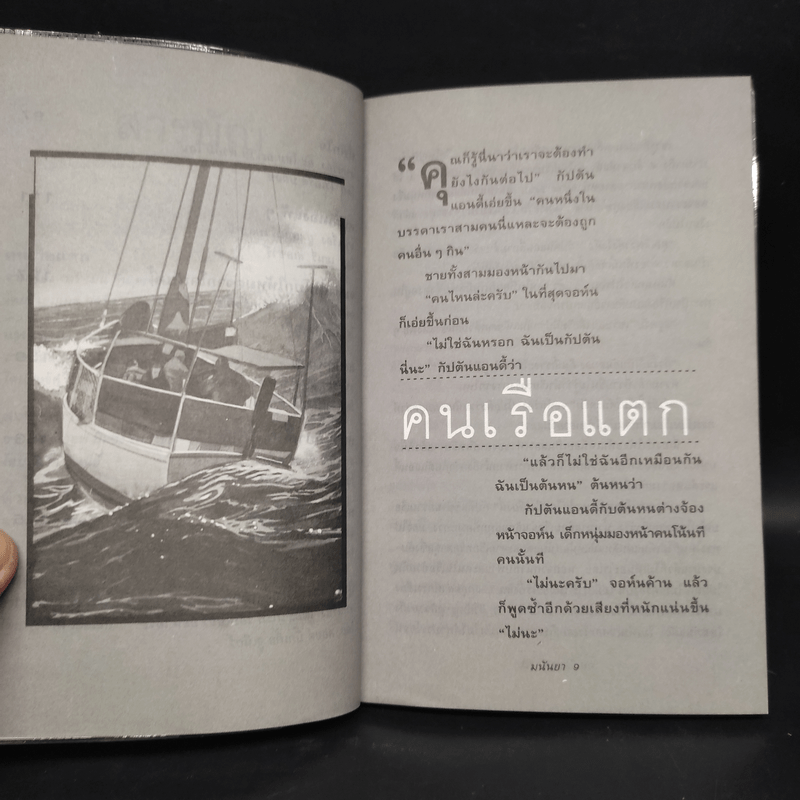 “คุณก็รู้นี่นาว่าเราจะต้องทำ
ยังไงกันต่อไป” กัปตัน
แอนดี้เอ่ยขึ้น “คนหนึ่งใน
บรรดาเราสามคนนี่แหละจะต้องถูก
คนอื่น ๆ กิน”
ชายทั้งสามมองหน้ากันไปมา
“คนไหนล่ะครับ” ในที่สุดจอห์น
ก็เอ่ยขึ้นก่อน
“ไม่ใช่ฉันหรอก ฉันเป็นกัปตัน
นี่นะ” กัปตันแอนดี้ว่า
คนเรือแตก
“แล้วก็ไม่ใช่ฉันอีกเหมือนกัน
ฉันเป็นต้นหน” ต้นหนว่า
กัปตันแอนดี้กับต้นหนต่างจ้อง
หน้าจอห์น เด็กหนุ่มมองหน้าคนโน้นที
คนนั้นที
“ไม่นะครับ” จอห์นค้าน แล้ว
ก็พูดซ้ำอีกด้วยเสียงที่หนักแน่นขึ้น
“ไม่นะ”
มนันยา ๑